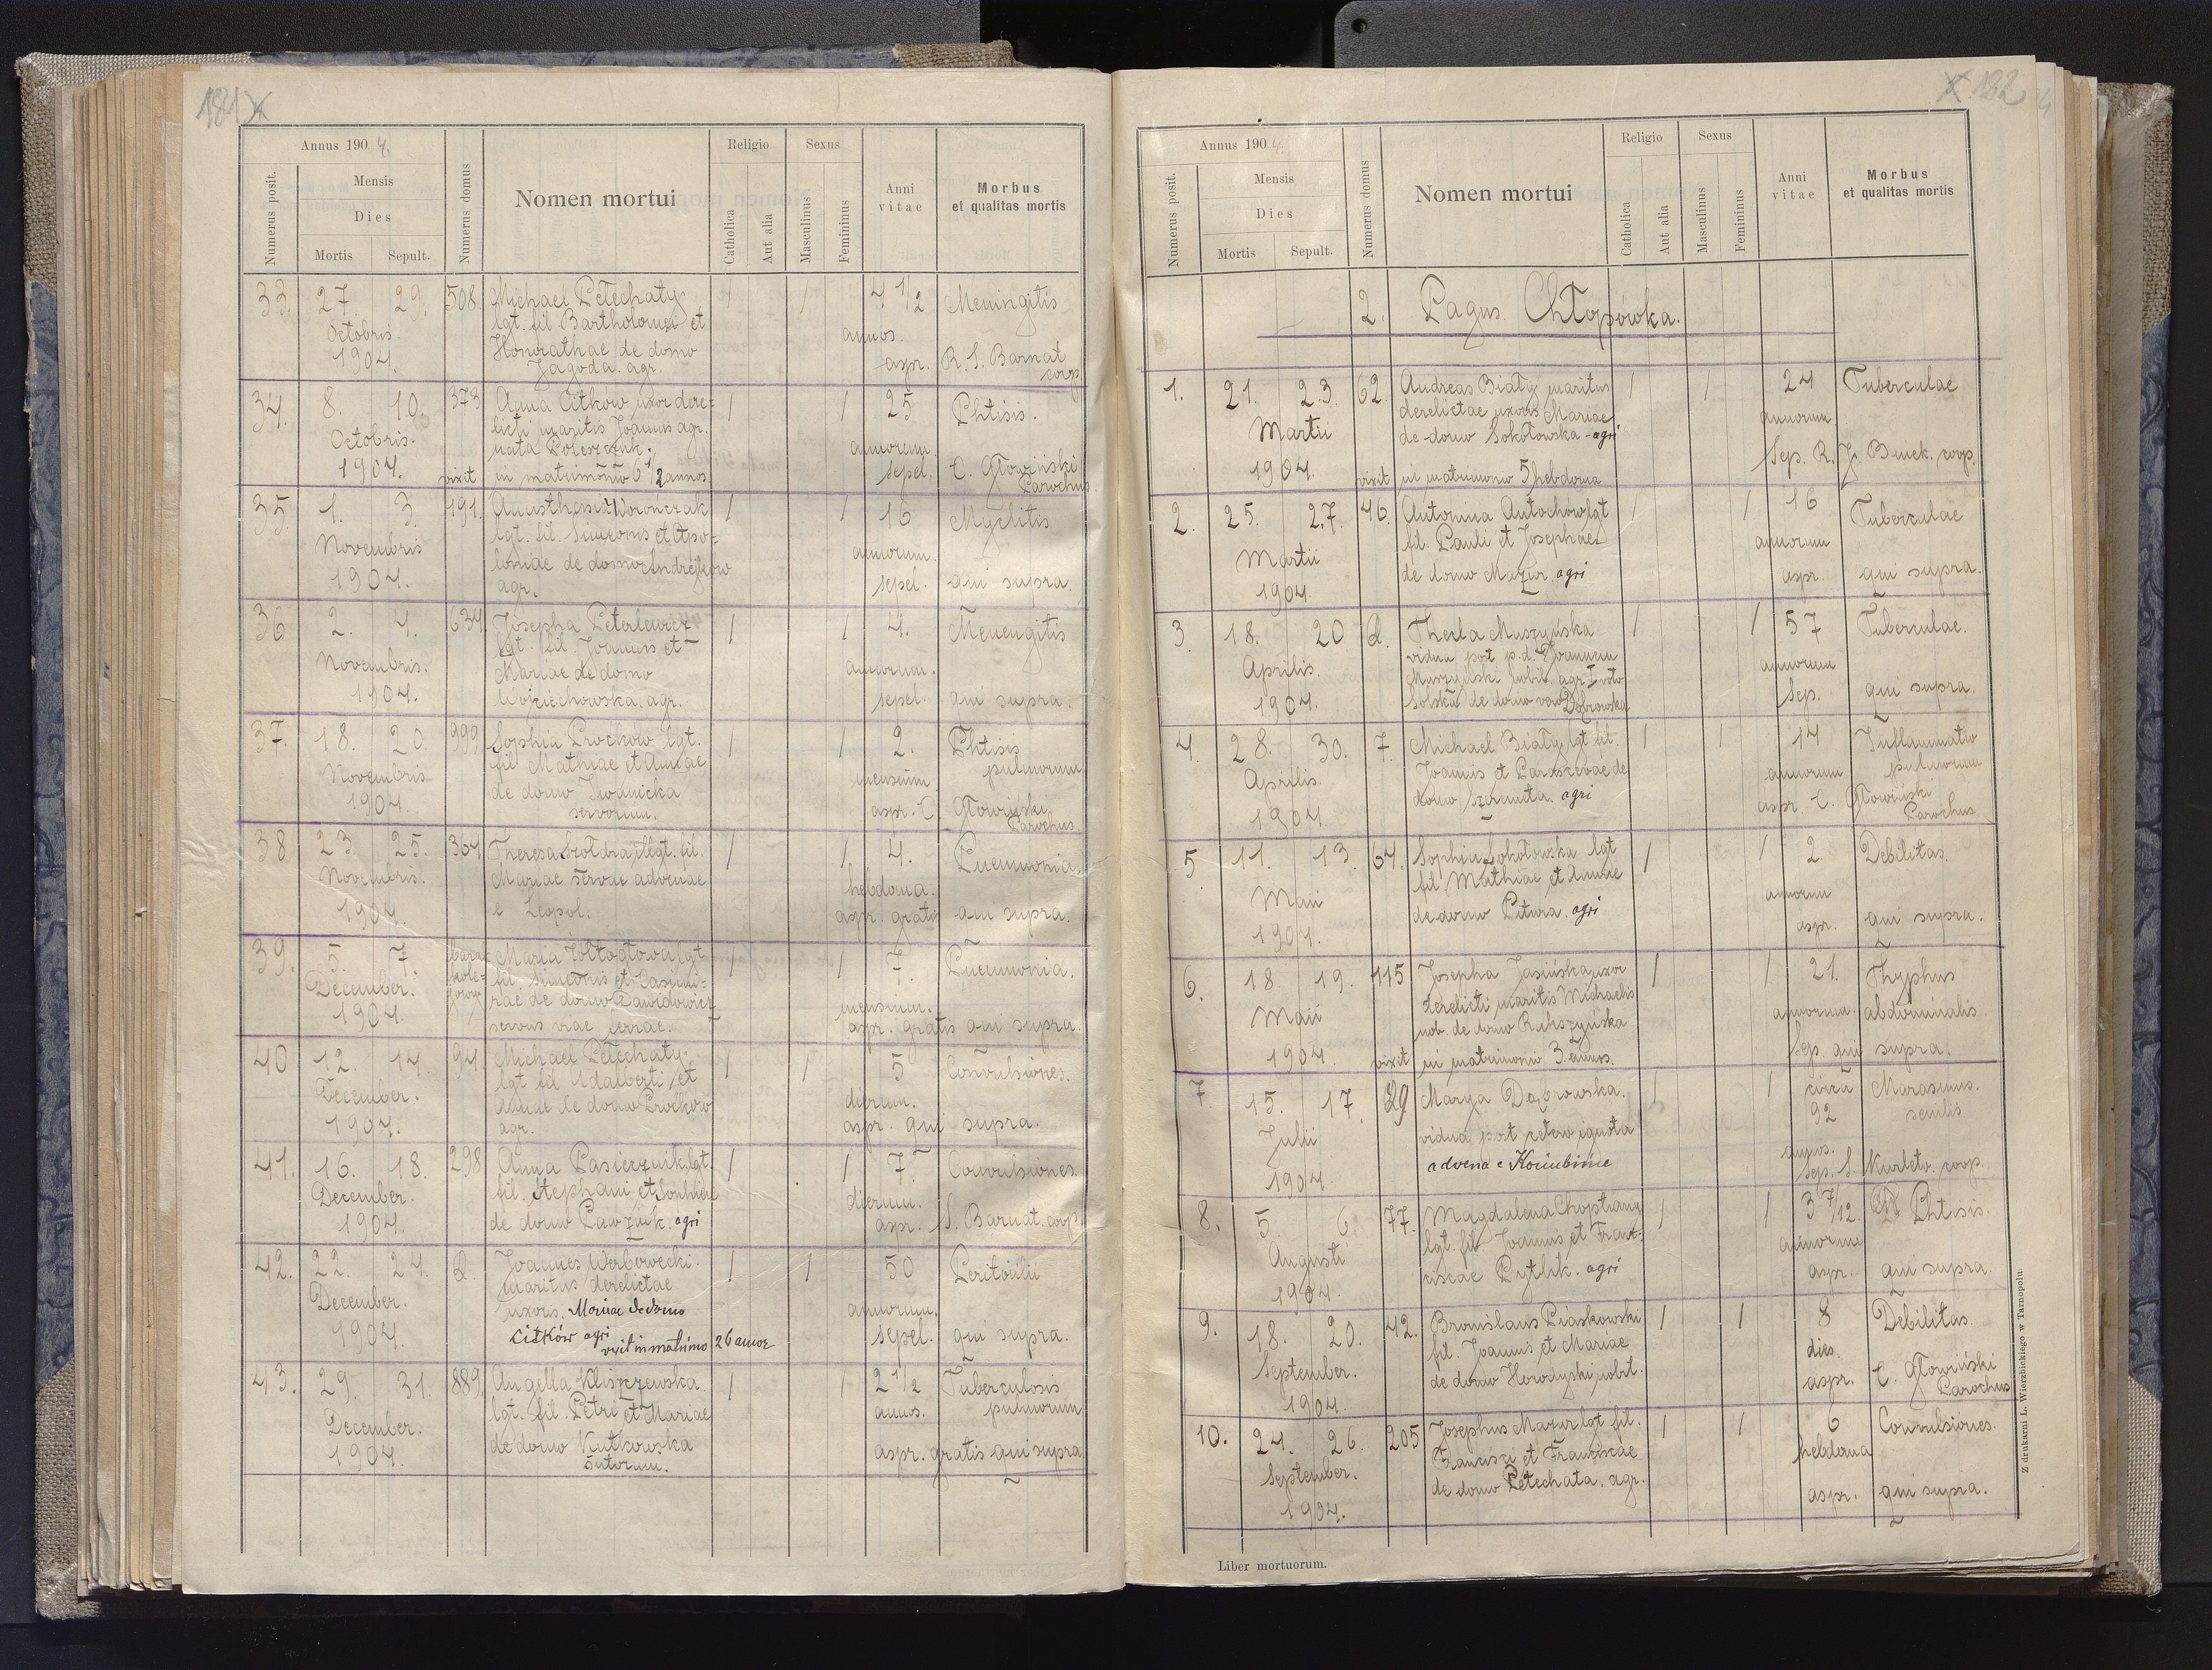 181
Annus 1904.
Numerus posit.
Mensis
Dies
Mortis Sepult.
Numerus domus
Nomen mortui
Religio
Catholica
Aut alia
Sexus
Masculinus
Femininus
Anni vitae
Morbus
et qualitas mortis
33. 27. 29. 508. Michael Petechaty 1 1 4 1/2 Meningitis
Octobris lgt. fil. Bartholomei et annos.
1904. Honorathae de domo aspr. R. S. Barnat
Jagoda. agr. coop.
34. 8. 10. 373 Anna Citkow uxor dere= 1 1 25 Phtisis.
Octobris. licti maritis Joannis agr. annorum.
1904. nata Poleszczuk. sepel. C. Głowiński
vixit in matrimonio 6 1/2 annos. Parochus
35. 1. 3. 191. Anasthasia Woronczak 1 1 16 Myelitis
Novembris lgt. fil. Simeonis et Apo= annorum.
1904. loniae de domo Andrejków sepel. qui supra.
agr.
36 2. 4. 634. Josepha Peterlewicz 1 1 4. Menengitis
Novembris. lgt. fil. Joannis et annorum.
1904. Mariae de domo sepel. qui supra.
Wojciechowska. agr.
37. 18. 20. 999 Sophia Prockow lgt. 1 1 2. Phtisis
Novembris fil. Mathiae et Annae mensium. pulmorum
1904. de domo Iwanicka aspr. C. Głowiński
servorum. Parochus
38 23. 25. 364 Theresa Szołdra illgt. fil. 1 1 4. Pneumonia.
Novembris. Mariae servae advenae hebdoma.
1904. e Leopol. aspr. gratis qui supra.
39. 5. 7. Maria Żołtogłowa lgt 1 1 7. Pneumonia.
December. fil. Simeonis et Casimi=
1904. rae de domo Dawidowicz mensium.
servus viae ferrae. aspr. gratis qui supra.
40 12. 14. 94. Michael Petechaty. 1 1 5 Convulsiones.
December. lgt fil Adalberti et dierum.
1904. Annae de domo Prockow aspr. qui supra.
agr.
41. 16. 18. 298 Anna Pasiecznik lgt. 1 1 7. Convulsiones.
December. fil. Stephani et Sophiae dierum.
1904. de domo Pawzuk. agri aspr. S. Barnat. coop.
42. 22. 24. Joannes Werbowecki. 1 1 50 Peritonitis
December. maritus derelictae annorum.
1904. uxoris. Mariae de domo sepel. qui supra.
Citków agri vixit in matrimo 26 annos
43. 29. 31. 889. Angella Kliszczewska 1 1 2 1/2 Tuberculosis
December. lgt. fil. Petri et Mariae annos. pulmorum
1904. de domo Kutkowska aspr. gratis qui supra
sutorum.
182
Annus 1904.
Numerus posit.
Mensis
Dies
Mortis Sepult.
Numerus domus
Nomen mortui
Religio
Catholica
Aut alia
Sexus
Masculinus
Femininus
Anni vitae
Morbus
et qualitas mortis
2. Pagus. Chłopówka.
1. 21. 23. 62. Andreas Biały maritus 1 1 24 Tuberculae
Martii derelictae uxoris Mariae annorum
1904. de domo Sokołowska - agri Sep. R. J. Buick. coop.
vixit in matrimonio 5 hebdoma
2. 25. 27. 46. Antonina Antochów lgt 1 1 16 Tuberculae
Martii fil. Pauli et Josephae annorum
1904. de domo Mazur. agri aspr. qui supra.
3. 18. 20 Thecla Muszyńska 1 1 57 Tuberculae.
Aprilis. vidua post p.d. Joannem annorum
1904. Muszyński agr. I voto Sep. qui supra.
Solska de domo vero Dąbrowska
4. 28. 30. 7. Michael Biały lgt fil. 1 1 14 Inflammatio
Aprilis Joannis et Paraszevae de annorum pulmorum
1904. domo Szeremeta. agri aspr. C. Głowiński
Parochus
5. 11. 13. 64. Sophia Sokołowska lgt 1 1 2. Debilitas.
Maii fil. Mathiae et Annae annorum
1904. de domo Pitura. agri aspr. qui supra.
6. 18. 19. 115 Josepha Jasińska uxor 1 1 21. Thyphus
Maii derelicti maritis Michaelis annorum. abdominalis.
1904. nob. de domo Ruhszyńska Sep. qui supra.
vixit in matrimonio 3. annos.
7. 15. 17. 29 Marya Dąbrowska. 1 1 circa 92 Marasmus.
Julii vidua post cetero ignota annos. senilis
1904. advena e Kociubińce Sep. S. Kurletv. coop.
8. 5. 6. 77. Magdalena Choptiany 1 1 3 7/12. Phtisis.
Augusti lgt. fil. Joannis et Fran= annorum
1904. ciscae Pytlik. agri aspr. qui supra.
9. 18. 20. 42. Bronislaus Piaskowski 1 1 8 Debilitas.
September. fil. Joannis et Mariae dies.
1904. de domo Horodyski nobrt. aspr. C. Głowiński
Parochus
10. 24. 26. 205 Josephus Mazur lgt fil. 1 1 6 Convulsiones.
September. Francisci et Franciscae hebdoma
1904. de domo Petechata. agr. aspr. qui supra.
Liber mortuorum.
Z drukarni L. Wierzbickiego w Tarnopolu.